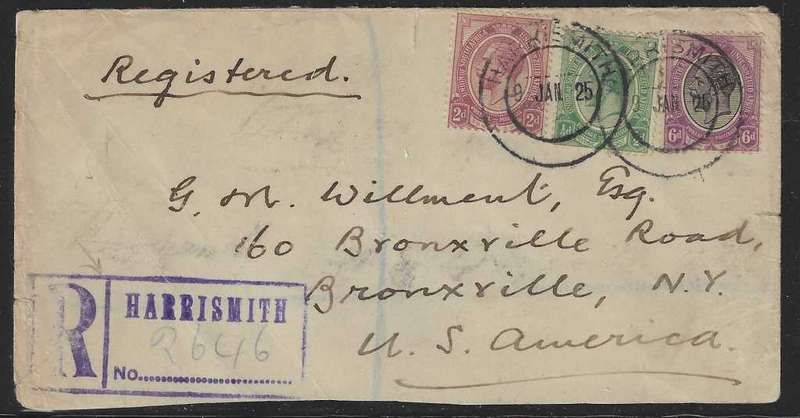 Registered.
HARRISMITH
9 JAN 25
HARRISMITH
9 JAN 25
2d 2d
½d
6d 6d
G. M. Willment, Esq.
160 Bronxville Road,
Bronxville, N.Y.
U. S. America.
R HARRISMITH
2646
No.